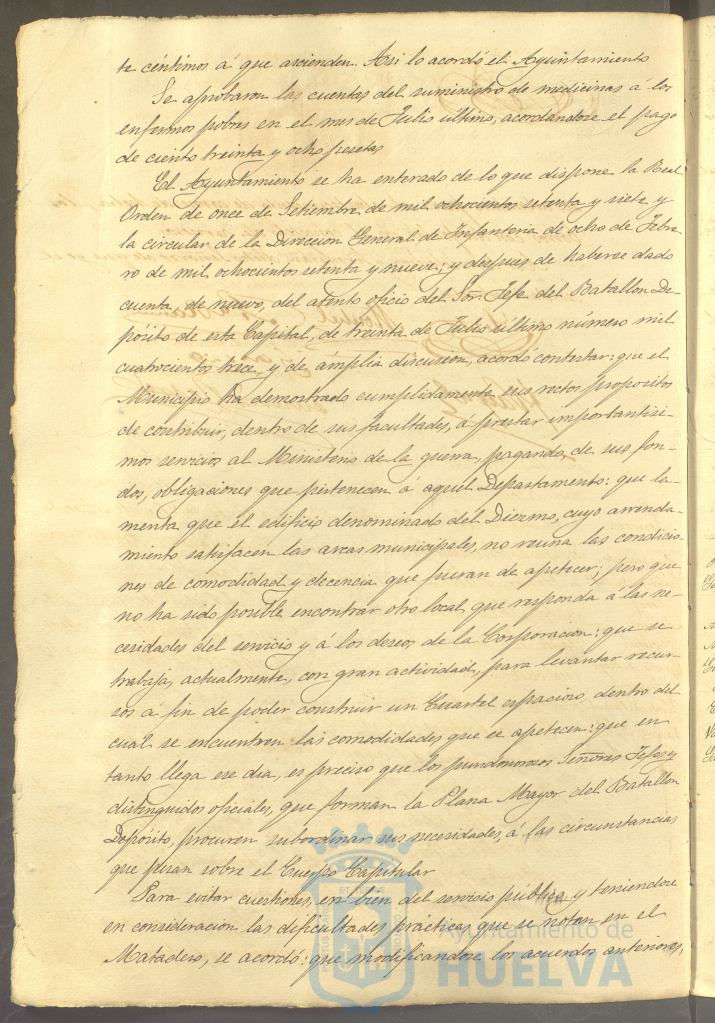 te céntimos á que ascienden. Asi lo acordó el Ayuntamiento
Se aprobaron las cuentas del suministro de medicinas á los
enfermos pobres en el mes de Julio último, acordandose el pago
de ciento treinta y ocho pesetas
El Ayuntamiento se ha enterado de lo que dispone la Real
Orden de once de Setiembre de mil ochocientos setenta y siete y
la circular de la Direccion General de Infanteria de ocho de Febre
ro de mil ochocientos setenta y nueve; y despues de haberse dado
cuenta, de nuevo, del atento oficio del Sor. Jefe del Batallon De-
pósito de esta Capital, de treinta de Julio último número mil
cuatrocientos trece y de amplia discusion, acordó contestar: que el
Municipio ha demostrado cumplidamente sus rectos propositos
de contribuir, dentro de sus facultades, á prestar importantisi-
mos servicios al Ministerio de la guerra, pagando, de sus fon-
dos, obligaciones que pertenecen á aquel Departamento: que la-
menta que el edificio denominado del Diezmo, cuyo arrenda-
miento satisfacen las arcas municipales, no reuna las condicio-
nes de comodidad y decencia que fueran de apetecer; pero que
no ha sido posible encontrar otro local que responda á las ne-
cesidades del servicio y á los deseos de la Corporacion: que se
trabaja, actualmente, con gran actividad, para levantar recur-
sos á fin de poder construir un Cuartel espacioso, dentro del
cual se encuentren las comodidades que se apetecen: que en
tanto llega ese dia, es preciso que los pundonorosos Señores Jefes y
distinguidos oficiales, que forman la Plana Mayor del Batallon
Depósito, procuren subordinar sus necesidades, á las circunstancias
que pesan sobre el Cuerpo Capitular
Para evitar cuestiones, en bien del servicio público y teniendose
en consideracion las dificultades prácticas que se notan en el
Matadero, se acordó: que modificandose los acuerdos anteriores,
Ayuntamiento de
HUELVA